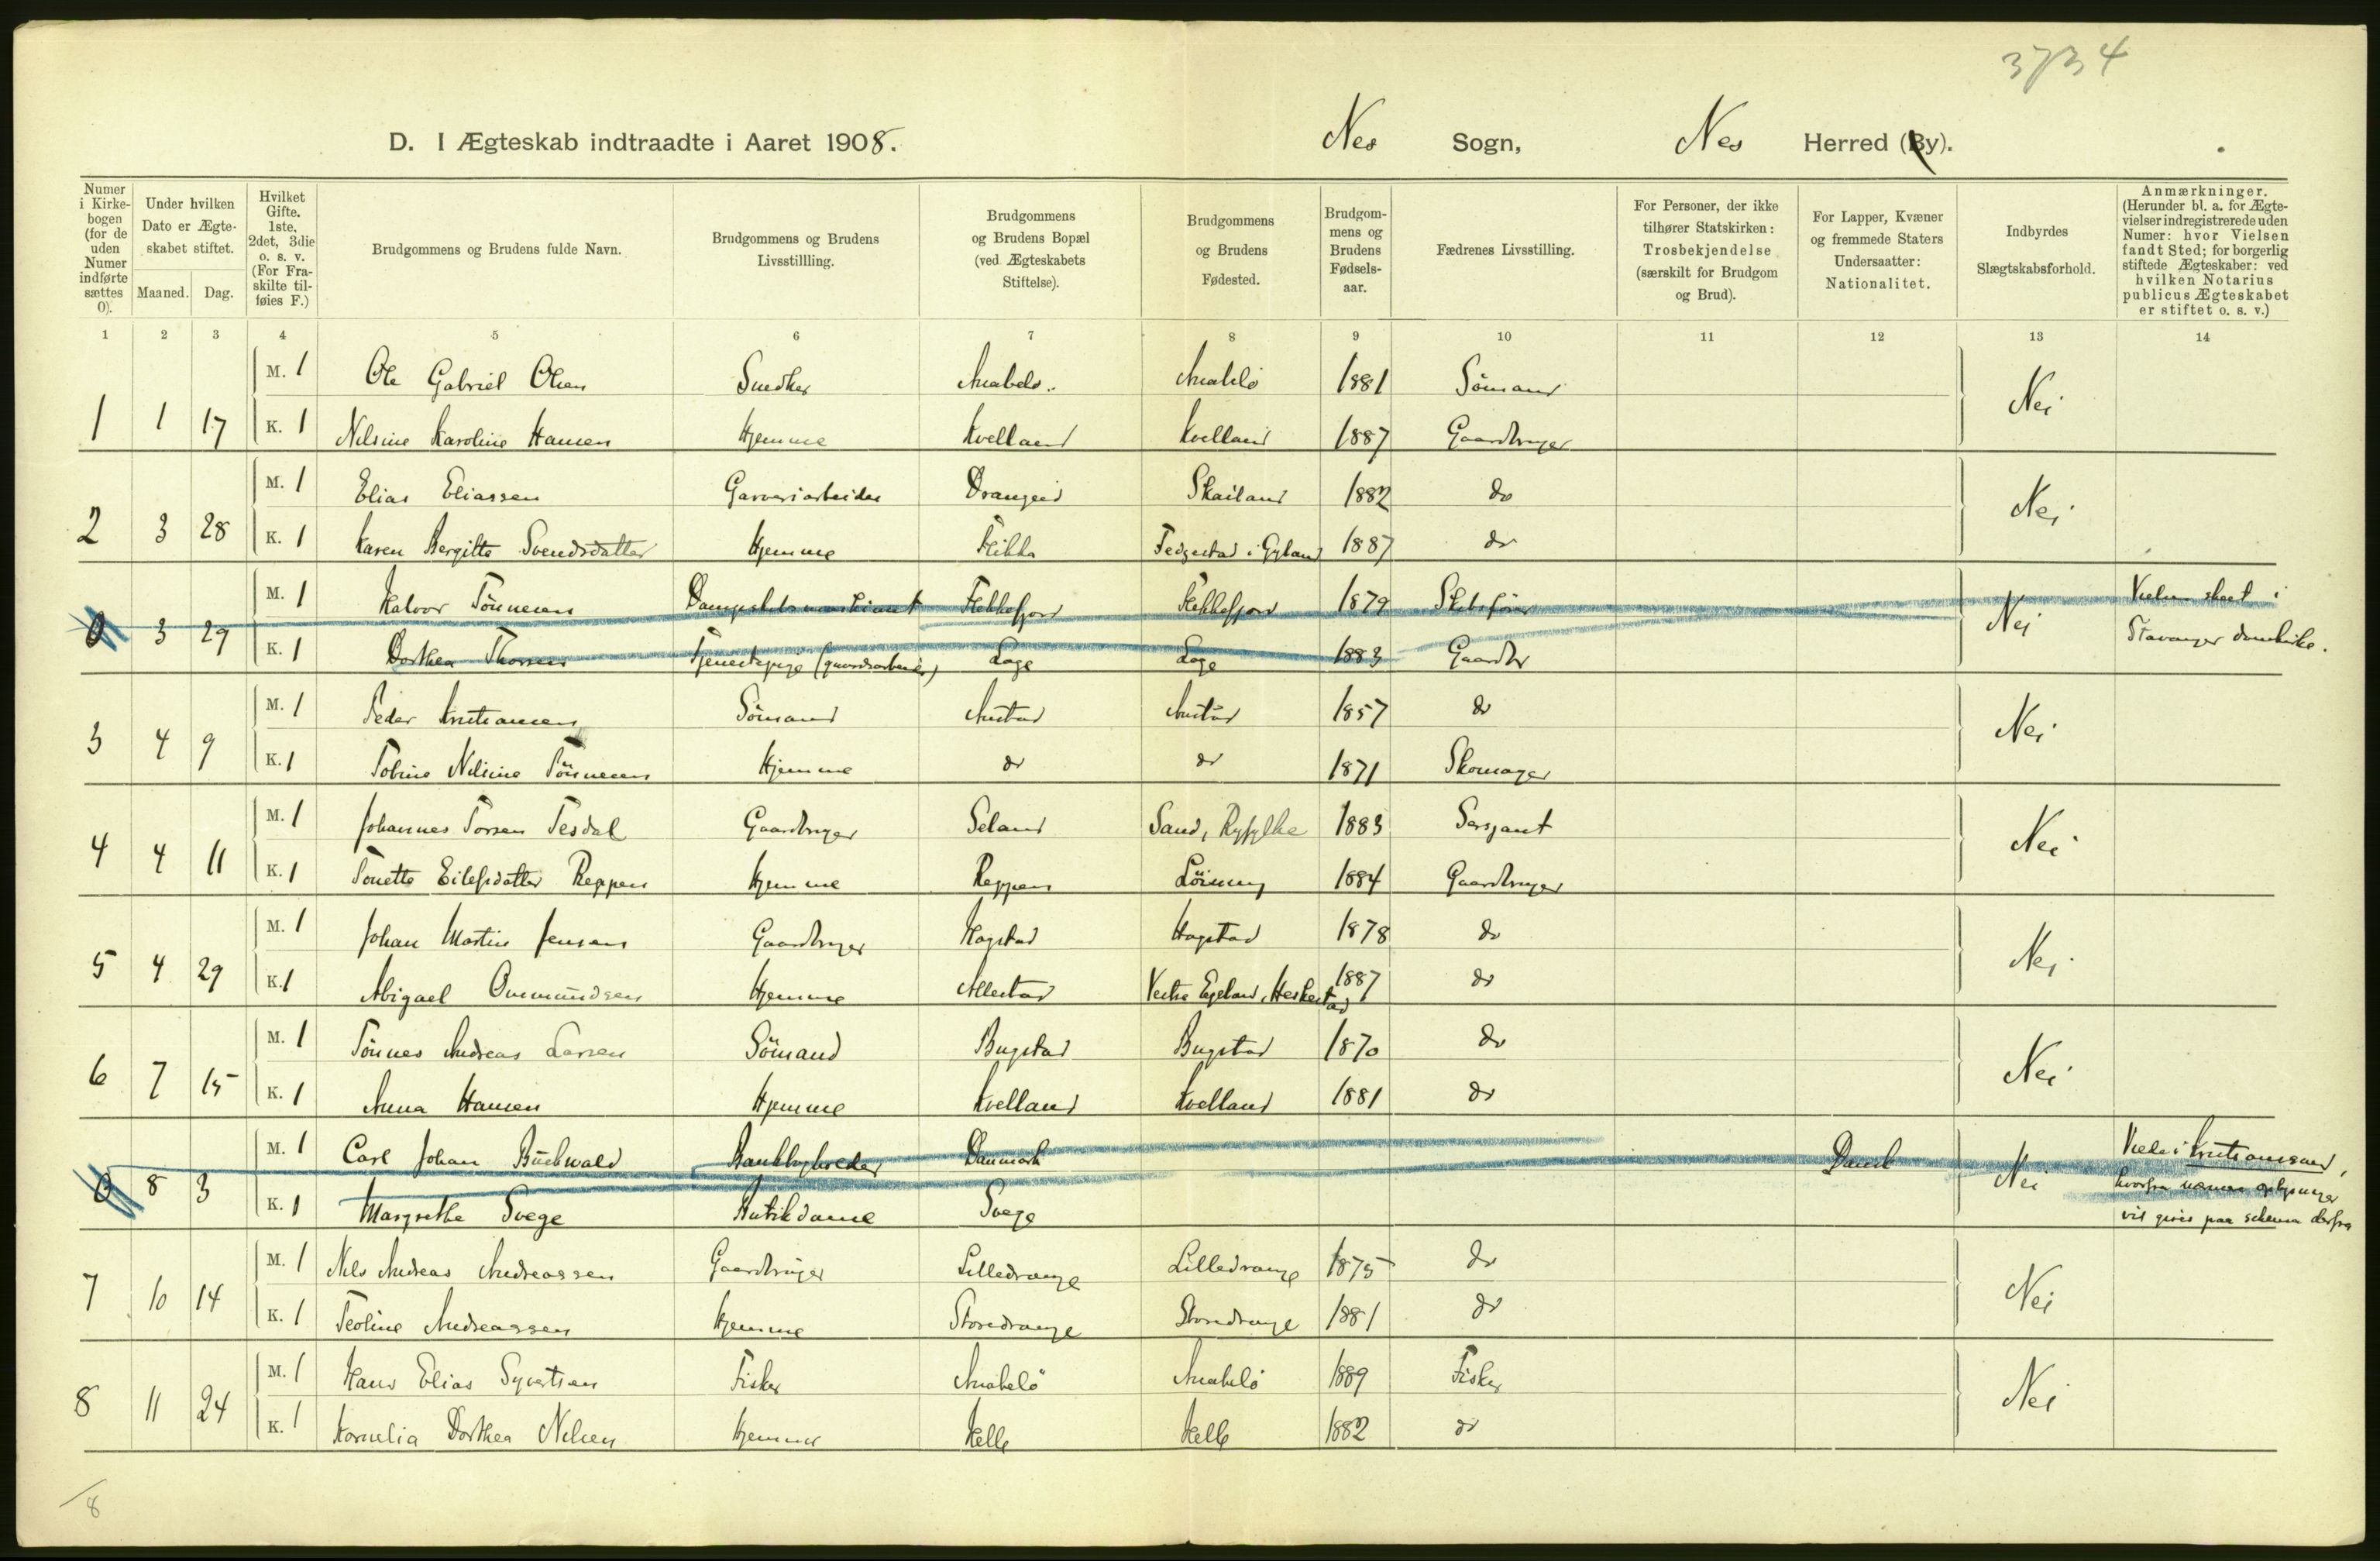 3734
D. I Ægteskab indtraadte i Aaret 1908. Nes Sogn, Nes Herred (By).
Numer i Kirke-bogen (for de uden Numer indførte sættes 0).
Under hvilken Dato er Ægte-skabet stiftet.
Maaned. Dag.
Hvilket Gifte. 1ste, 2det, 3die o. s. v. (For Fra-skilte til-føies F.)
Brudgommens og Brudens fulde Navn.
Brudgommens og Brudens Livsstillling.
Brudgommens og Brudens Bopæl (ved Ægteskabets Stiftelse).
Brudgommens og Brudens Fødested.
Brudgom-mens og Brudens Fødsels-aar.
Fædrenes Livsstilling.
For Personer, der ikke tilhører Statskirken: Trosbekjendelse (særskilt for Brudgom og Brud).
For Lapper, Kvæner og fremmede Staters Undersaatter: Nationalitet.
Indbyrdes Slægtskabsforhold.
Anmærkninger. (Herunder bl. a. for Ægte-vielser indregistrerede uden Numer: hvor Vielsen fandt Sted; for borgerlig stiftede Ægteskaber: ved hvilken Notarius publicus Ægteskabet er stiftet o. s. v.)
1 2 3 4 5 6 7 8 9 10 11 12 13 14
M. 1 Ole Gabriel Olsen Snedker Anabelø Anabelø 1881 Sömand
1 1 17 K. 1 Nilsine Karoline Hansen Hjemme Kvelland Kvelland 1887 Gaardbruger Nei
M. 1 Elias Eliassen Garveriarbeider Drangeid Skailand 1882 do
2 3 28 K. 1 Karen Bergitte Svendsdatter Hjemme Flikka Fedgestad i Gyland 1887 do Nei
M. 1 Halvor Tönnesen Dampskibsmaskinist Flekkefjord Flekkefjord 1879 Skibsfører Vielsen skeet i
0 3 29 K. 1 Dorthea Thorsen Tjenestepige (gaardsarbeide) Loge Loge 1883 Gaardbr Nei Stavanger domkirke.
M. 1 Peder Kristiansen Sömand Anstad Anstad 1857 do
3 4 9 K. 1 Tobine Nilsine Tönnesen Hjemme do do 1871 Skomager Nei
M. 1 Johannes Torsen Tesdal Gaardbruger Seland Sand, Ryfylke 1883 Sersjant
4 4 11 K. 1 Tonette Eilefsdatter Reppen Hjemme Reppen 1884 Gaardbruger Nei
M. 1 Johan Martin Jensen Gaardbruger Hogstad Hogstad 1878 do
5 4 29 K. 1 Abigael Ommundsen Hjemme Allestad Vestre Egeland, Heskestad 1887 do Nei
M. 1 Tönnes Andreas Larsen Sömand Bugstad Bugstad 1870 do
6 7 15 K. 1 Anna Hansen Hjemme Kvelland Kvelland 1881 do Nei
M. 1 Carl Johan Buchwald Danmark Dansk Viede i Kristiansand,
0 8 3 K. 1 Margrethe Svege Butikdame Svege Nei hvorfra nærmere oplysninger
vil gives paa schema derfra
M. 1 Nils Andreas Andreassen Gaardbruger Lilledrange Lilledrange 1875 do
7 10 14 K. 1 Teoline Andreassen Hjemme Storedrange Storedrange 1881 do Nei
M. 1 Hans Elias Syvertsen Fisker Anabelö Anabelö 1889 Fisker
8 11 24 K. 1 Kornelia Dorthea Nilsen Hjemme Helle Helle 1882 do Nei
8